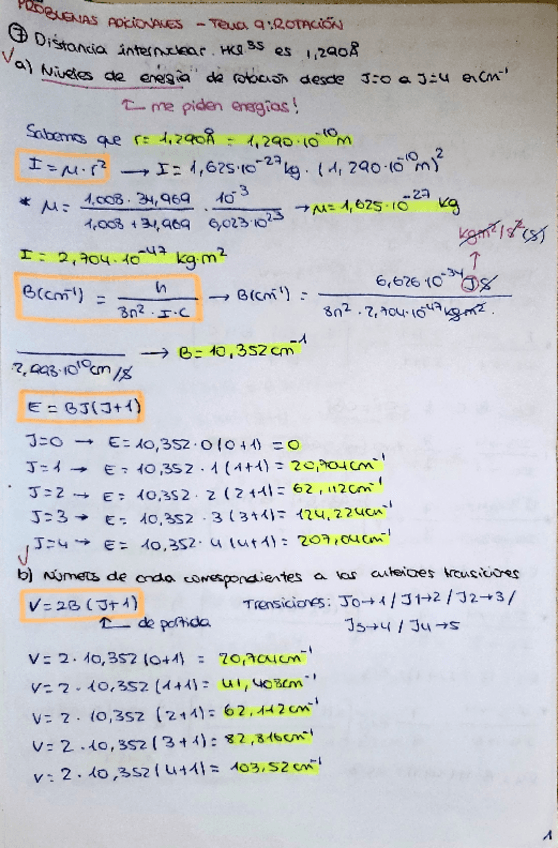 PROBLEMAS ADICIONALES - TEMA 9: ROTACIÓN
⑦ Distancia internuclear HCl³⁵ es 1,290Å
√ a) Niveles de energía de rotación desde J=0 a J=4 en cm⁻¹
↑ me piden energías!
Sabemos que r = 1,290Å = 1,290·10⁻¹⁰ m
I = μ·r² → I = 1,625·10⁻²⁷ kg · (1,290·10⁻¹⁰ m)²
* μ = (1,008 · 34,969 / 1,008 + 34,969) · (10⁻³ / 6,023·10²³) → μ = 1,625·10⁻²⁷ kg
kgm²/s² (s)
I = 2,704·10⁻⁴⁷ kg·m²
B(cm⁻¹) = h / 8π²·I·C → B(cm⁻¹) = 6,626·10⁻³⁴ Js / 8π² · 2,704·10⁻⁴⁷ kgm² ·
/ 2,998·10¹⁰ cm/s → B = 10,352 cm⁻¹
E = BJ(J+1)
J=0 → E = 10,352 · 0(0+1) = 0
J=1 → E = 10,352 · 1(1+1) = 20,704 cm⁻¹
J=2 → E = 10,352 · 2(2+1) = 62,112 cm⁻¹
J=3 → E = 10,352 · 3(3+1) = 124,224 cm⁻¹
√ J=4 → E = 10,352 · 4(4+1) = 207,04 cm⁻¹
b) Números de onda correspondientes a las anteriores transiciones
V = 2B(J+1) Transiciones: J0→1 / J1→2 / J2→3 /
↑ de partida J3→4 / J4→5
V = 2 · 10,352(0+1) = 20,704 cm⁻¹
V = 2 · 10,352(1+1) = 41,408 cm⁻¹
V = 2 · 10,352(2+1) = 62,112 cm⁻¹
V = 2 · 10,352(3+1) = 82,816 cm⁻¹
V = 2 · 10,352(4+1) = 103,52 cm⁻¹
1